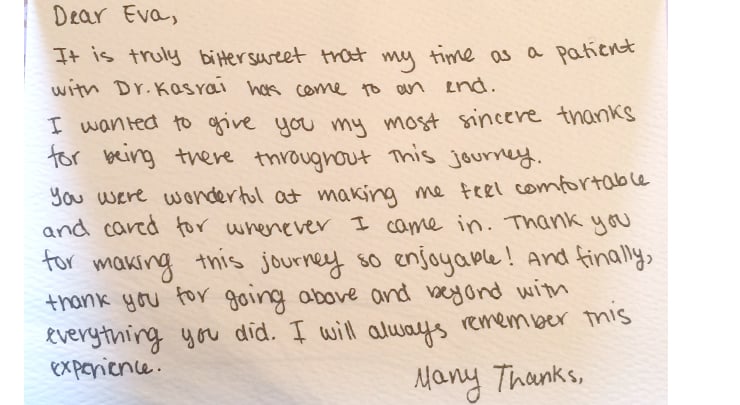 Dear Eva,
It is truly bittersweet that my time as a patient
with Dr. Kasrai has come to an end.
I wanted to give you my most sincere thanks
for being there throughout this journey.
You were wonderful at making me feel comfortable
and cared for whenever I came in. Thank you
for making this journey so enjoyable! And finally,
thank you for going above and beyond with
everything you did. I will always remember this
experience.
Many Thanks,